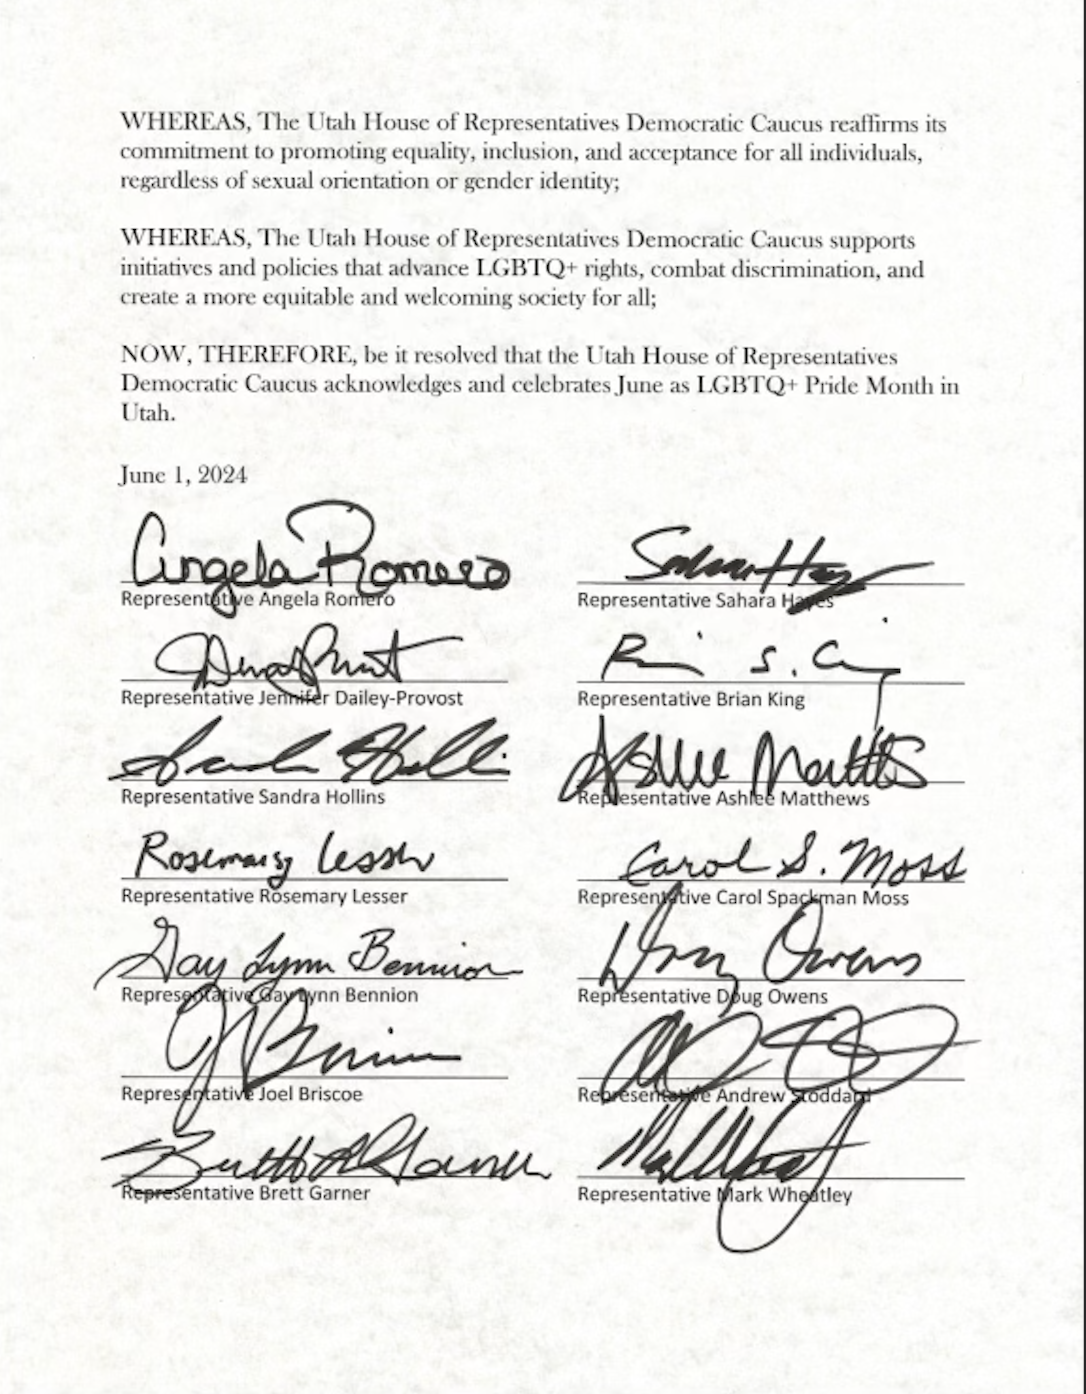 WHEREAS, The Utah House of Representatives Democratic Caucus reaffirms its
commitment to promoting equality, inclusion, and acceptance for all individuals,
regardless of sexual orientation or gender identity;
WHEREAS, The Utah House of Representatives Democratic Caucus supports
initiatives and policies that advance LGBTQ+ rights, combat discrimination, and
create a more equitable and welcoming society for all;
NOW, THEREFORE, be it resolved that the Utah House of Representatives
Democratic Caucus acknowledges and celebrates June as LGBTQ+ Pride Month in
Utah.
June 1, 2024
Angela Romero
Representative Angela Romero
Representative Sahara Hayes
Representative Jennifer Dailey-Provost
Representative Brian King
Representative Sandra Hollins
Ashlee Matthews
Representative Ashlee Matthews
Rosemary Lesser
Representative Rosemary Lesser
Carol S. Moss
Representative Carol Spackman Moss
Gay Lynn Bennion
Representative Gay Lynn Bennion
Doug Owens
Representative Doug Owens
Representative Joel Briscoe
Representative Andrew Stoddard
Representative Brett Garner
Representative Mark Wheatley